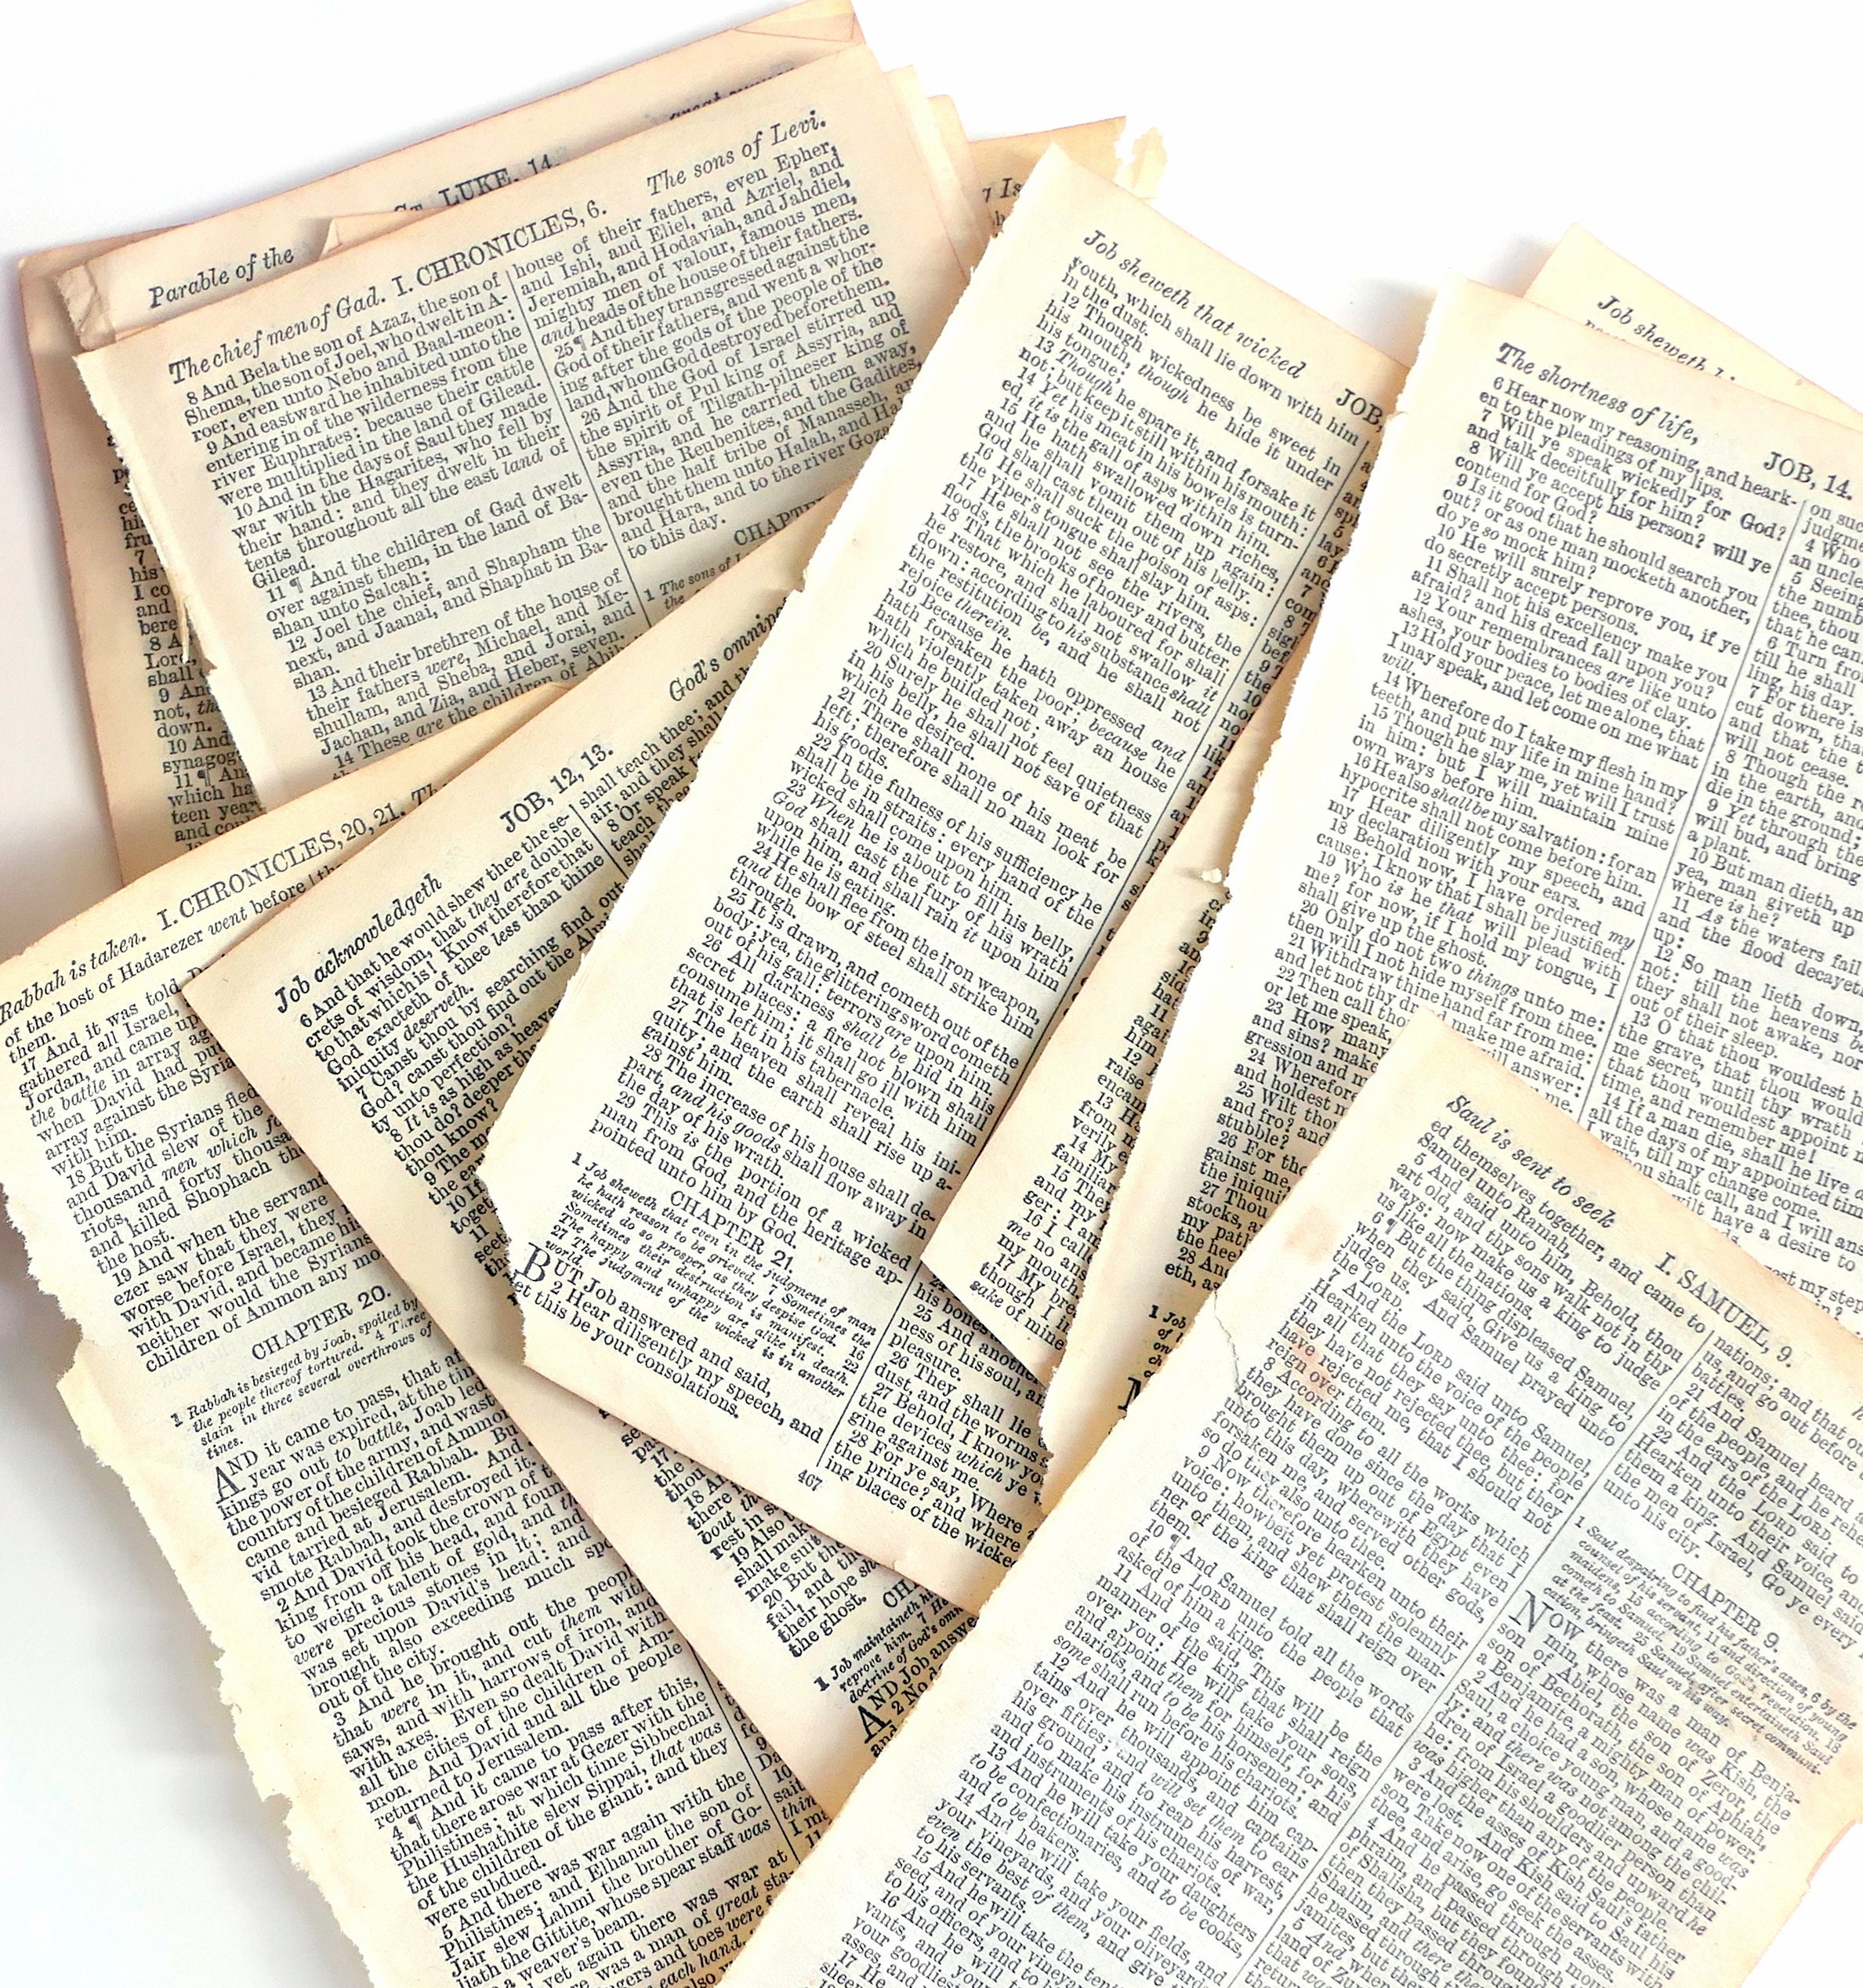 St. LUKE, 14.
Parable of the
great supper
The chief men of Gad. I. CHRONICLES, 6. The sons of Levi.
8 And Bela the son of Azaz, the son of
Shema, the son of Joel, who dwelt in A-
roer, even unto Nebo and Baal-meon:
9 And eastward he inhabited unto the
entering in of the wilderness from the
river Euphrates: because their cattle
were multiplied in the land of Gilead.
10 And in the days of Saul they made
war with the Hagarites, who fell by
their hand: and they dwelt in their
tents throughout all the east land of
Gilead.
11 ¶ And the children of Gad dwelt
over against them, in the land of Ba-
shan unto Salcah:
12 Joel the chief, and Shapham the
next, and Jaanai, and Shaphat in Ba-
shan.
13 And their brethren of the house of
their fathers were, Michael, and Me-
shullam, and Sheba, and Jorai, and
Jachan, and Zia, and Heber, seven.
14 These are the children of Abih
house of their fathers, even Epher,
and Ishi, and Eliel, and Azriel, and
Jeremiah, and Hodaviah, and Jahdiel,
mighty men of valour, famous men,
and heads of the house of their fathers.
25 ¶ And they transgressed against the
God of their fathers, and went a whor-
ing after the gods of the people of the
land, whom God destroyed before them.
26 And the God of Israel stirred up
the spirit of Pul king of Assyria, and
the spirit of Tilgath-pilneser king of
Assyria, and he carried them away,
even the Reubenites, and the Gadites,
and the half tribe of Manasseh, an
brought them unto Halah, and Ha
and Hara, and to the river Goza
to this day.
CHAPT
1 The sons of
7
his
I co
and
bere
8 A
Lord,
shall
9 And
not, the
down.
10 And
synagog
11 ¶ An
which ha
teen year
and cou
Rabbah is taken. I. CHRONICLES, 20, 21. Th
of the host of Hadarezer went before
them.
17 And it was told D
gathered all Israel,
Jordan, and came up
the battle in array ag
when David had pu
array against the Syria
with him.
18 But the Syrians fled
and David slew of the
thousand men which fo
riots, and forty thousa
and killed Shophach the
the host.
19 And when the servant
ezer saw that they were
worse before Israel, they
with David, and became hi
neither would the Syrians
children of Ammon any mo
CHAPTER 20.
1 Rabbah is besieged by Joab, spoiled by
the people thereof tortured. 4 Three
slain in three several overthrows of
tines.
AND it came to pass, that a
year was expired, at the tin
kings go out to battle, Joab led
the power of the army, and wast
country of the children of Ammon
came and besieged Rabbah. Bu
vid tarried at Jerusalem. And
smote Rabbah, and destroyed it.
2 And David took the crown of
king from off his head, and foun
to weigh a talent of gold, and th
were precious stones in it; and
was set upon David's head: and
brought also exceeding much spo
out of the city.
3 And he brought out the peopl
that were in it, and cut them with
saws, and with harrows of iron, and
with axes. Even so dealt David with
all the cities of the children of Am-
mon. And David and all the people
returned to Jerusalem.
4 ¶ And it came to pass after this,
that there arose war at Gezer with the
Philistines; at which time Sibbechai
the Hushathite slew Sippai, that was
of the children of the giant: and they
were subdued.
5 And there was war again with the
Philistines; and Elhanan the son of
Jair slew Lahmi the brother of Go-
liath the Gittite, whose spear staff was
a weaver's beam.
yet again there was war at
was a man of great sta-
gers and toes were
each hand,
Job acknowledgeth JOB, 12, 13. God's omnip
6 And that he would shew thee the se-
crets of wisdom, that they are double
to that which is! Know therefore that
God exacteth of thee less than thine
iniquity deserveth.
7 Canst thou by searching find out
God? canst thou find out the Al
ty unto perfection?
8 It is as high as heaven
thou do? deeper tha
thou know?
9 The me
the ea
10 If
toget
11
seet
shall teach thee; and th
air, and they shall
8 Or speak t
teach the
17
thou
18 A
there
bout th
rest in s
19 Also t
shall mak
make suit
20 But the
fail, and th
their hope sh
the ghost.
1 Job maintaineth hi
reprove him. 7 He
doctrine of God's omni
AND Job answe
2 No
Job sheweth that wicked JOB,
youth, which shall lie down with him
in the dust.
12 Though wickedness be sweet in
his mouth, though he hide it under
his tongue:
13 Though he spare it, and forsake it
not; but keep it still within his mouth:
14 Yet his meat in his bowels is turn-
ed, it is the gall of asps within him.
15 He hath swallowed down riches,
and he shall vomit them up again:
God shall cast them out of his belly.
16 He shall suck the poison of asps:
the viper's tongue shall slay him.
17 He shall not see the rivers, the
floods, the brooks of honey and butter.
18 That which he laboured for shall
he restore, and shall not swallow it
down: according to his substance shall
the restitution be, and he shall not
rejoice therein.
19 Because he hath oppressed and
hath forsaken the poor; because he
hath violently taken away an house
which he builded not;
20 Surely he shall not feel quietness
in his belly, he shall not save of that
which he desired.
21 There shall none of his meat be
left; therefore shall no man look for
his goods.
22 In the fulness of his sufficiency he
shall be in straits: every hand of the
wicked shall come upon him.
23 When he is about to fill his belly,
God shall cast the fury of his wrath
upon him, and shall rain it upon him
while he is eating.
24 He shall flee from the iron weapon,
and the bow of steel shall strike him
through.
25 It is drawn, and cometh out of the
body; yea, the glittering sword cometh
out of his gall: terrors are upon him.
26 All darkness shall be hid in his
secret places: a fire not blown shall
consume him; it shall go ill with him
that is left in his tabernacle.
27 The heaven shall reveal his ini-
quity; and the earth shall rise up a-
gainst him.
28 The increase of his house shall de-
part, and his goods shall flow away in
the day of his wrath.
29 This is the portion of a wicked
man from God, and the heritage ap-
pointed unto him by God.
CHAPTER 21.
1 Job sheweth that even in the judgment of man
he hath reason to be grieved. 7 Sometimes the
wicked do so prosper, as they despise God. 16
Sometimes their destruction is manifest. 22
The happy and unhappy are alike in death.
27 The judgment of the wicked is in another
world.
BUT Job answered and said,
2 Hear diligently my speech, and
let this be your consolations.
467
his bones
25 And anoth
ness of his soul, a
pleasure.
26 They shall lie
dust, and the worms s
27 Behold, I know yo
the devices which ye
gine against me.
28 For ye say, Where
the prince? and where
ing places of the wicke
him
12
raise
encam
from m
13 H
verily
14 My
familiar
15 They
and my
ger: I am
16 I call
me no ans
my mouth
17 My bre
though I in
sake of mine
Job sheweth
The shortness of life, JOB, 14.
6 Hear now my reasoning, and heark-
en to the pleadings of my lips.
7 Will ye speak wickedly for God?
and talk deceitfully for him?
8 Will ye accept his person? will ye
contend for God?
9 Is it good that he should search you
out? or as one man mocketh another,
do ye so mock him?
10 He will surely reprove you, if ye
do secretly accept persons.
11 Shall not his excellency make you
afraid? and his dread fall upon you?
12 Your remembrances are like unto
ashes, your bodies to bodies of clay.
13 Hold your peace, let me alone, that
I may speak, and let come on me what
will.
14 Wherefore do I take my flesh in my
teeth, and put my life in mine hand?
15 Though he slay me, yet will I trust
in him: but I will maintain mine
own ways before him.
16 He also shall be my salvation: for an
hypocrite shall not come before him.
17 Hear diligently my speech, and
my declaration with your ears.
18 Behold now, I have ordered my
cause; I know that I shall be justified.
19 Who is he that will plead with
me? for now, if I hold my tongue, I
shall give up the ghost.
20 Only do not two things unto me:
then will I not hide myself from thee.
21 Withdraw thine hand far from me:
and let not thy dr d make me afraid.
22 Then call thou ill answer:
or let me speak, me.
23 How many
and sins? make
gression and m
24 Wherefore
and holdest m
25 Wilt thou
and fro? and
stubble?
26 For tho
gainst me,
the iniqui
27 Thou
stocks, a
my path
the heel
28 And
eth, as
1 Job
on suc
judgme
4 Who
an uncle
5 Seeing
the numb
thee, thou
that he can
6 Turn from
till he shall
ling, his day.
7 For there is
cut down, tha
and that the t
will not cease.
8 Though the ro
in the earth, and
die in the ground;
9 Yet through the
will bud, and bring
a plant.
10 But man dieth, an
yea, man giveth up
where is he?
11 As the waters fail
and the flood decayeth
up:
12 So man lieth down,
not: till the heavens be
they shall not awake, nor
out of their sleep.
13 O that thou wouldest h
the grave, that thou would
me secret, until thy wrath
that thou wouldest appoint m
time, and remember me!
14 If a man die, shall he live a
all the days of my appointed tim
I wait, till my change come.
thou shalt call, and I will ans
wilt have a desire to
Saul is sent to seek I. SAMUEL, 9.
ed themselves together, and came to
Samuel unto Ramah,
5 And said unto him, Behold, thou
art old, and thy sons walk not in thy
ways: now make us a king to judge
us like all the nations.
6 ¶ But the thing displeased Samuel,
when they said, Give us a king to
judge us. And Samuel prayed unto
the LORD.
7 And the LORD said unto Samuel,
Hearken unto the voice of the people
in all that they say unto thee: for
they have not rejected thee, but they
have rejected me, that I should not
reign over them.
8 According to all the works which
they have done since the day that I
brought them up out of Egypt even
unto this day, wherewith they have
forsaken me, and served other gods,
so do they also unto thee.
9 Now therefore hearken unto their
voice: howbeit yet protest solemnly
unto them, and shew them the man-
ner of the king that shall reign over
them.
10 ¶ And Samuel told all the words
of the LORD unto the people that
asked of him a king.
11 And he said, This will be the
manner of the king that shall reign
over you: He will take your sons,
and appoint them for himself, for his
chariots, and to be his horsemen; and
some shall run before his chariots.
12 And he will appoint him cap-
tains over thousands, and captains
over fifties; and will set them to ear
his ground, and to reap his harvest,
and to make his instruments of war,
and instruments of his chariots.
13 And he will take your daughters
to be confectionaries, and to be cooks,
and to be bakers.
14 And he will take your fields, and
your vineyards, and your oliveyard
even the best of them, and
to his servants.
15 And he will take the tent
seed, and of your vineyar
to his officers, and to his
16 And he will take
vants, and
your goodlies
asses, and
17 He
sheep
nations; and that ou
us, and go out before
battles.
21 And Samuel heard a
of the people, and he rehe
in the ears of the LORD.
22 And the LORD said to
Hearken unto their voice, and
them a king. And Samuel said
the men of Israel, Go ye every
unto his city.
CHAPTER 9.
1 Saul despairing to find his father's asses, 6 by the
counsel of his servant, 11 and direction of young
maidens, 15 according to God's revelation, 18
cometh to Samuel. 19 Samuel entertaineth Saul
at the feast. 25 Samuel, after secret communi-
cation, bringeth Saul on his way.
NOW there was a man of Benja-
min, whose name was Kish, the
son of Abiel, the son of Zeror, the
son of Bechorath, the son of Aphiah,
a Benjamite, a mighty man of power.
2 And he had a son, whose name was
Saul, a choice young man, and a good-
ly: and there was not among the chil-
dren of Israel a goodlier person than
he: from his shoulders and upward he
was higher than any of the people.
3 And the asses of Kish Saul's father
were lost. And Kish said to Saul his
son, Take now one of the servants with
thee, and arise, go seek the asses.
4 And he passed through mount
phraim, and passed through the
of Shalisha, but they found
then they passed through
Shalim, and there
he passed through
jamites, but the
5 And
that was